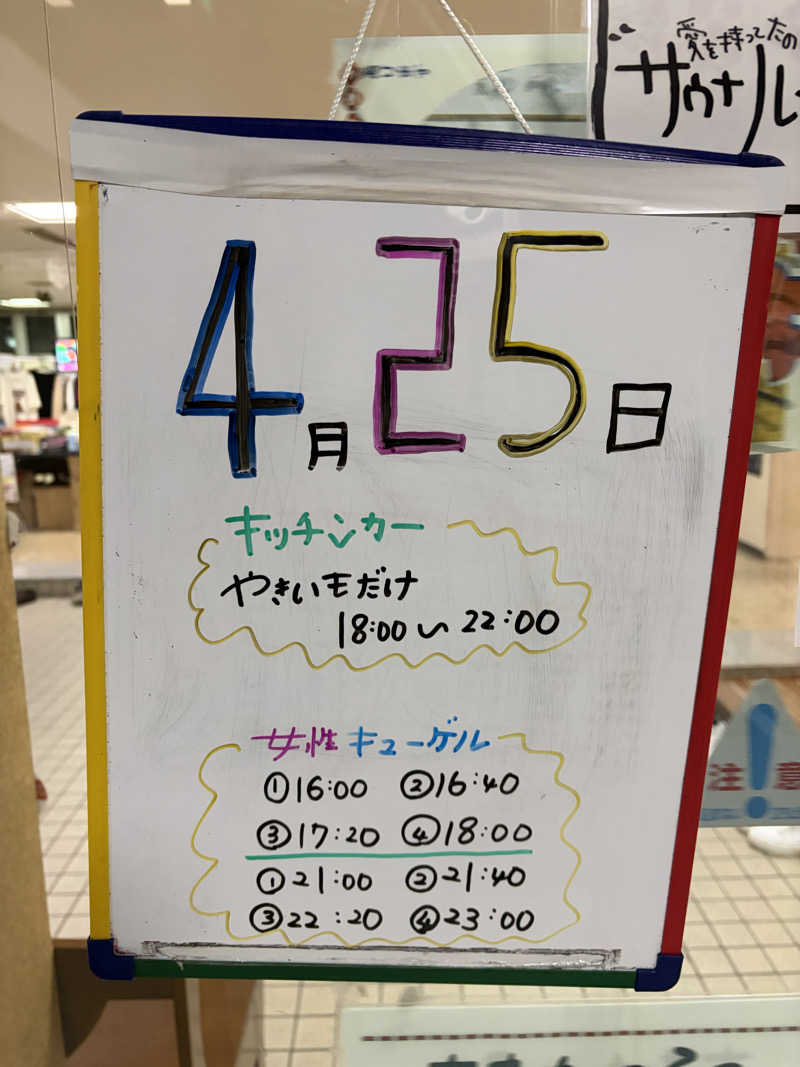 愛を持ってたの
サウナル
4月25日
キッチンカー
やきいもだけ
18:00〜22:00
女性キューゲル
①16:00 ②16:40
③17:20 ④18:00
①21:00 ②21:40
③22:20 ④23:00
注意